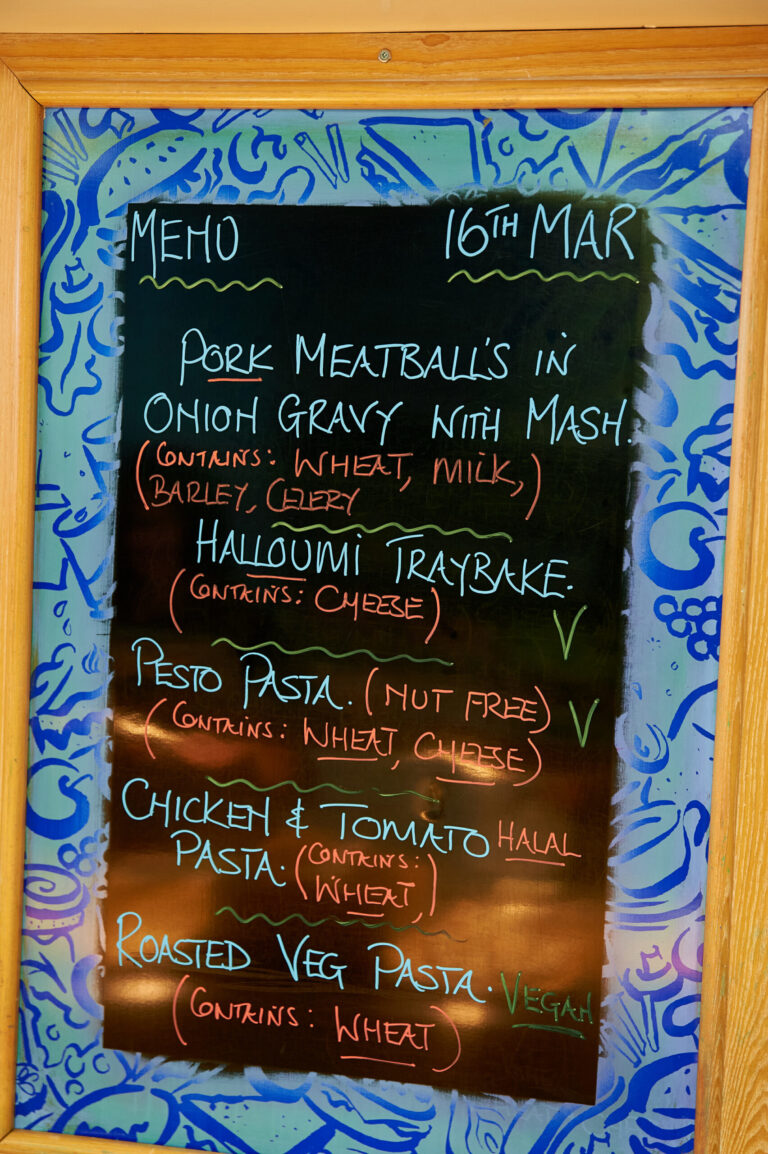 MENU 16TH MAR
PORK MEATBALL'S IN
ONION GRAVY WITH MASH.
(CONTAINS: WHEAT, MILK,)
BARLEY, CELERY
HALLOUMI TRAYBAKE.
(CONTAINS: CHEESE) V
PESTO PASTA. (NUT FREE) V
(CONTAINS: WHEAT, CHEESE)
CHICKEN & TOMATO HALAL
PASTA. (CONTAINS:
WHEAT,)
ROASTED VEG PASTA. VEGAN
(CONTAINS: WHEAT)